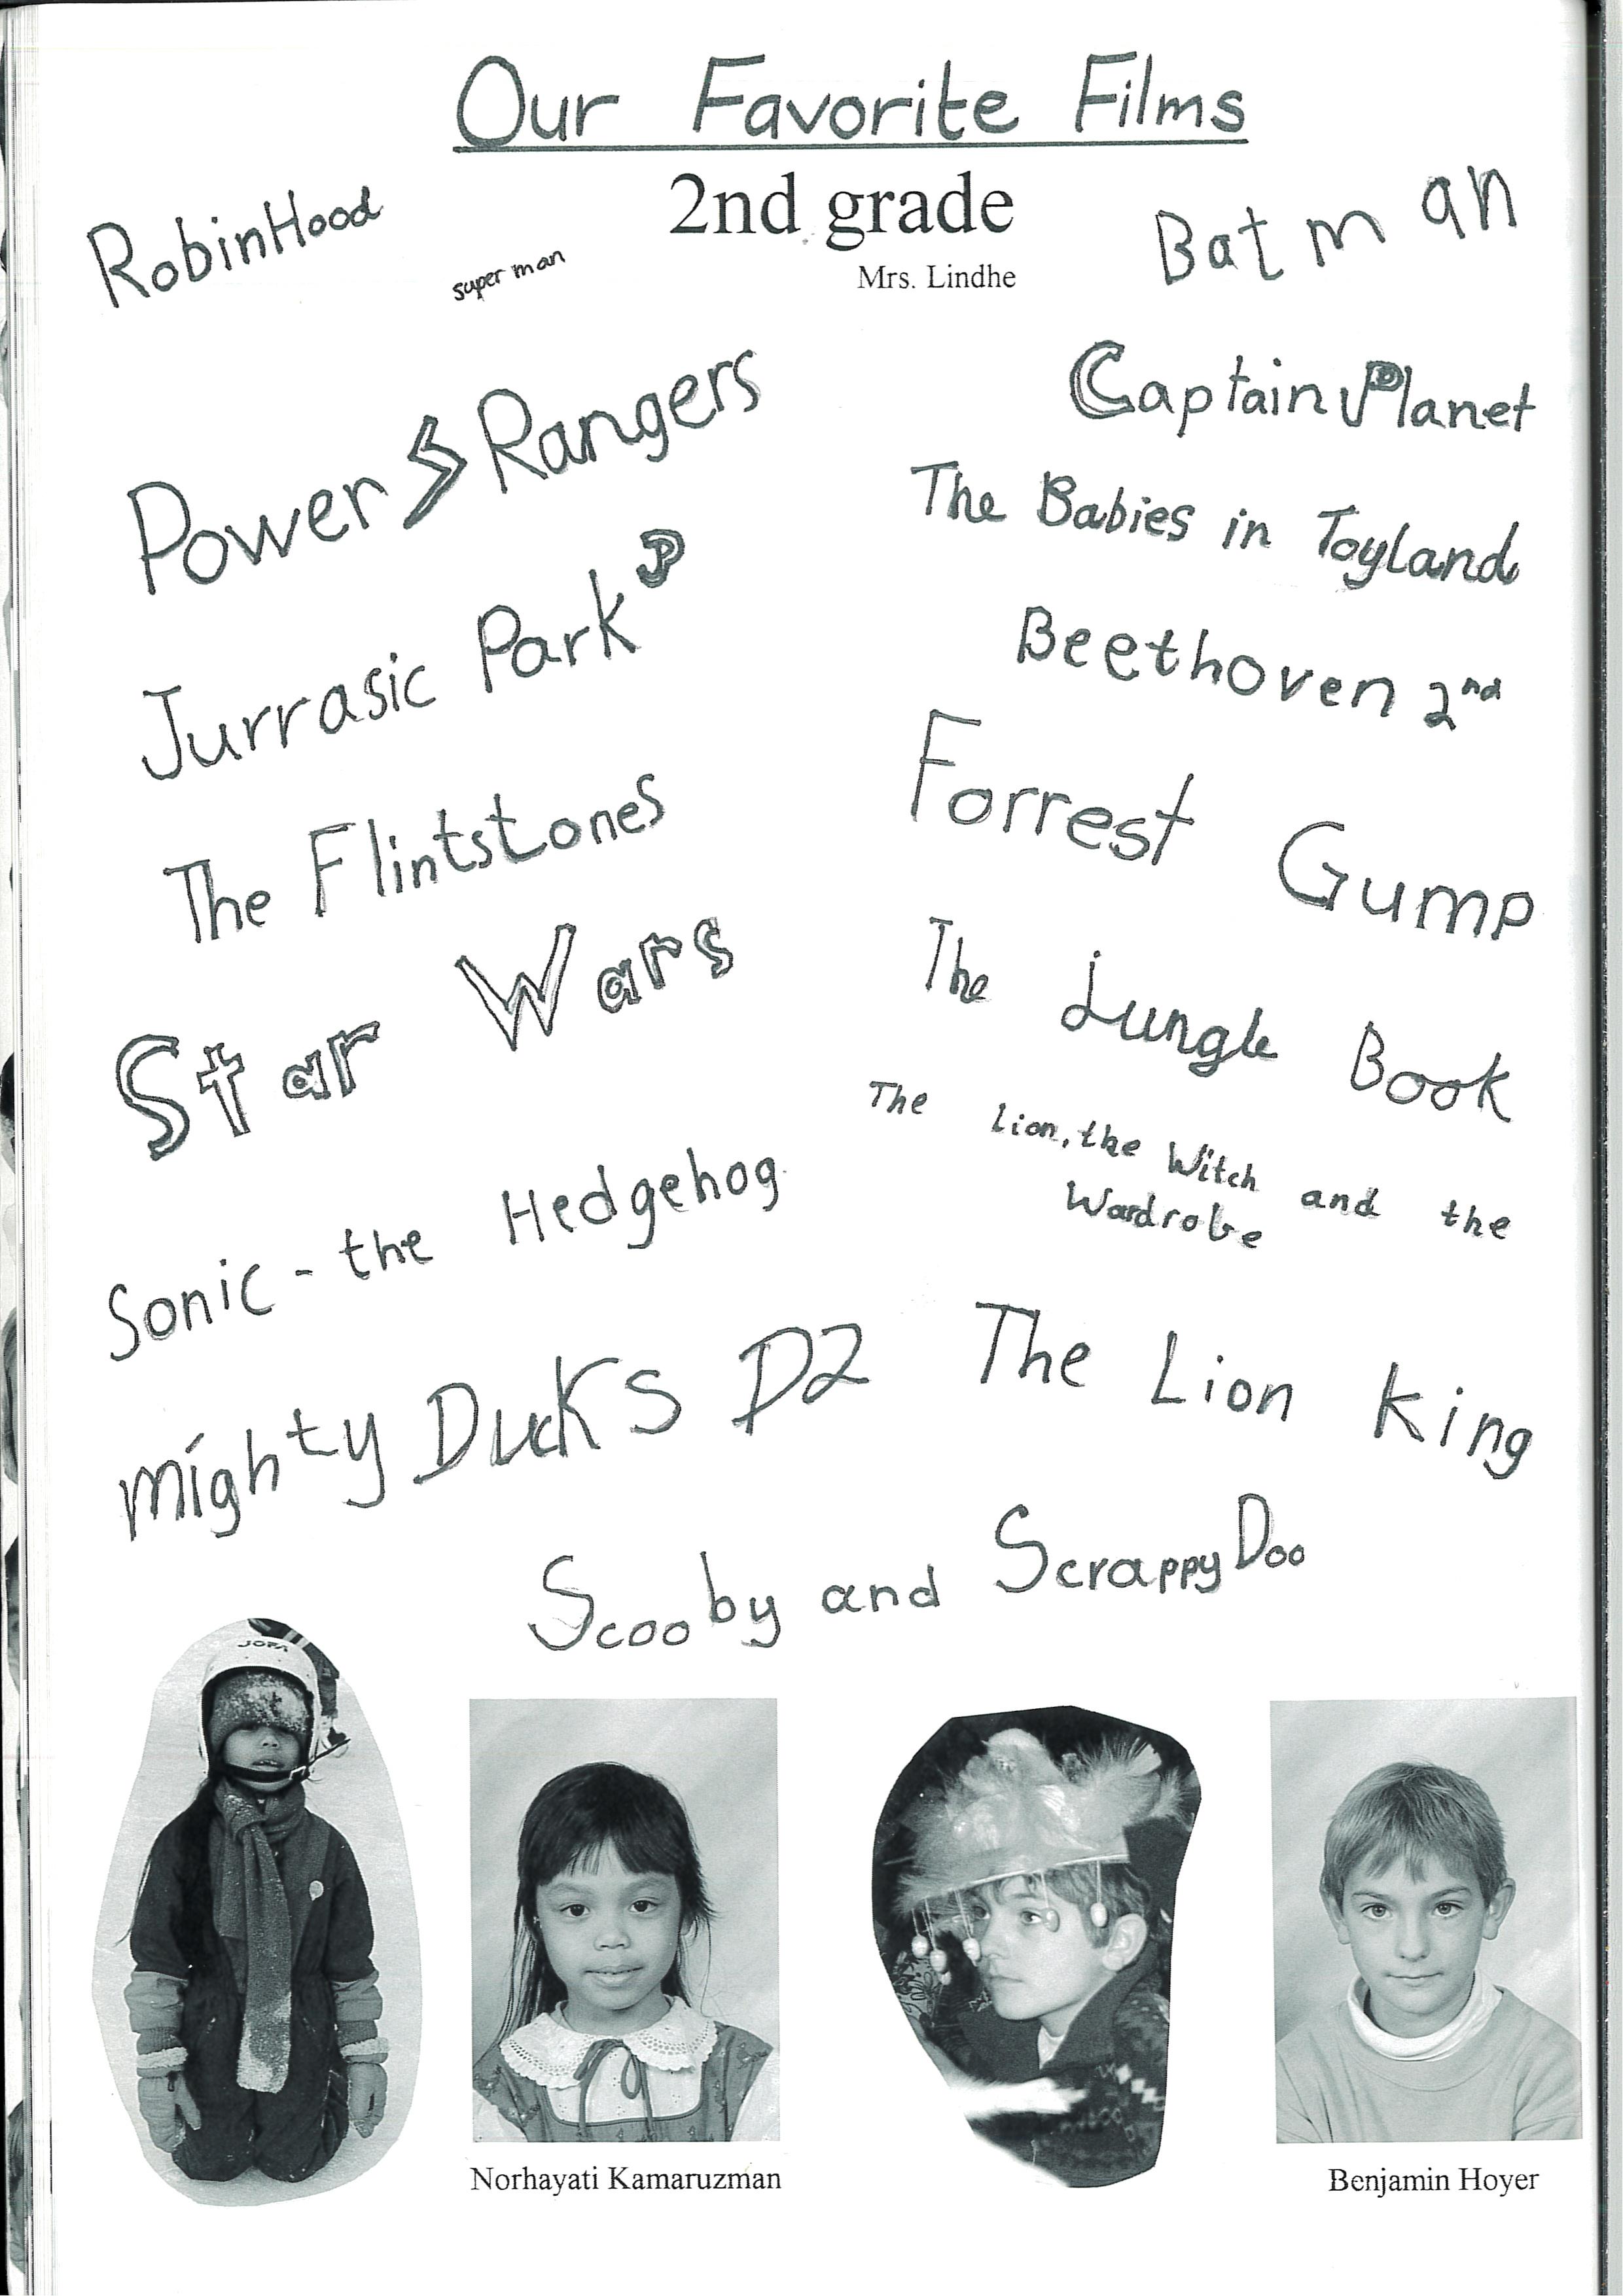 Our Favorite Films
2nd grade
Mrs. Lindhe
RobinHood
super man
Batman
Power Rangers
Captain Planet
The Babies in Toyland
Jurrasic Park JP
Beethoven 2nd
The Flintstones
Forrest Gump
Star Wars
The jungle Book
Sonic - the Hedgehog
The Lion, the Witch and the
Wardrobe
Mighty Ducks D2
The Lion King
Scooby and Scrappy Doo
JOFA
Norhayati Kamaruzman
Benjamin Hoyer